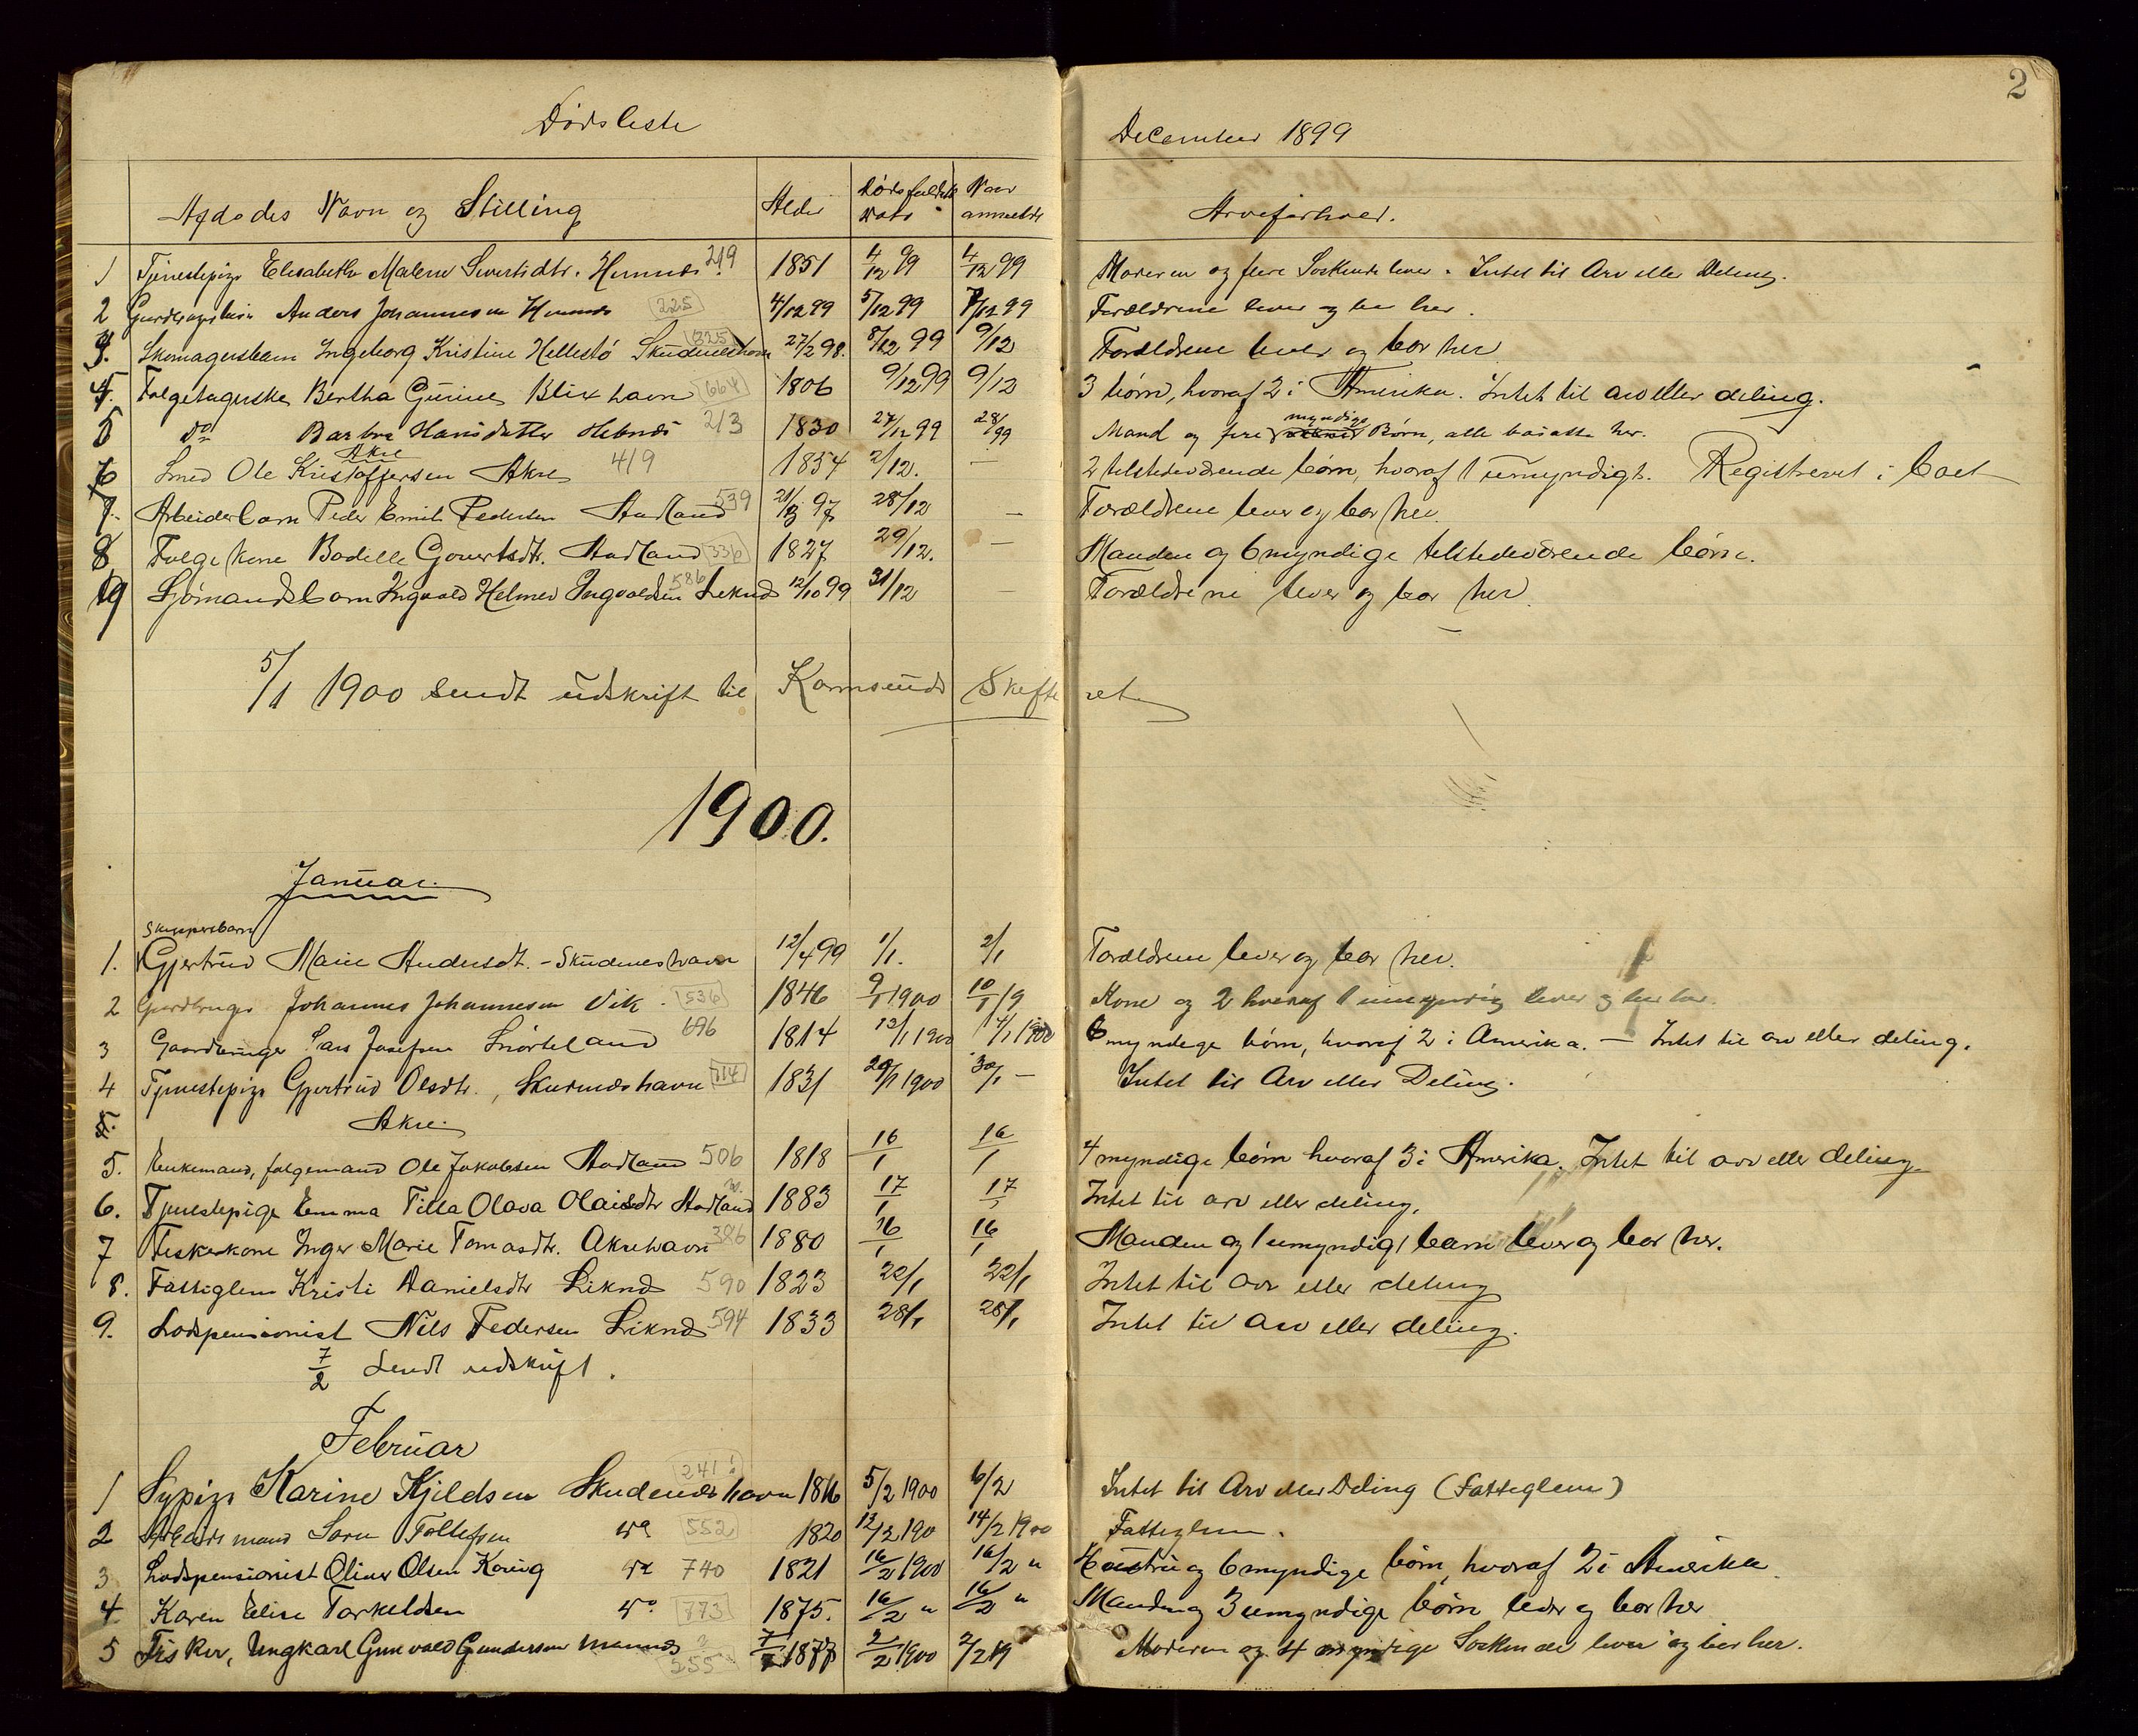 Dødsliste
December 1899
2
Afdødes Navn og Stilling Alder Dødsfaldets Dato Naar anmeldt Arveforhold.
1 Tjenestepige Elisabeth Malene Sivertsdtr. Hemnes 219 1851 4/12 99 4/12 99 Moderen og flere Søskende lever. Intet til Arv eller Deling.
2 Anders Johannesen Hemnes 225 4/12 99 5/12 99 7/12 99 Forældrene lever og bor her.
3. Skomagersbarn Ingeborg Kristine Hellestö Skudeneshavn 325 27/2 98. 8/12 99 9/12 Forældrene lever og bor her
4. Bertha Gurine Blixhavn 664 1806 9/12 99 9/12 3 börn, hvoraf 2 i Amerika. Intet til arv eller deling.
5 do Barbra Hansdatter 213 1830 27/12 99 28/99 Mand og fire myndige Börn, alle bosatte her.
Akre
6 Smed Ole Kristoffersen Akre 419 1854 2/12. — 2 tilstedeværende börn, hvoraf 1 umyndigt. Registreret i boet
7. Arbeiderbarn Peder Emil Pedersen Stadland 539 21/3 97 28/12 — Forældrene lever og bor her.
8 Folgekone Bodille Govertsdtr. Stadland 336 1827 29/12. — Manden og 6 myndige tilstedeværende börn.
9 Sjömandsbarn Ingvald Helmer Ingvaldsen Liknes 586 12/10 99 31/12 — Forældrene lever og bor her.
5/1 1900 sendt udskrift til Karmsunds Skifteret
1900.
Januar.
Skippersbarn
1. Gjertrud Marie Andersdt. - Skudeneshavn 12/4 99 1/1. 2/1 Forældrene lever og bor her.
2 Gardbruger Johannes Johannesen Vik 536 1846 9/1 1900 10/1 19 Kone og 2 hvoraf 1 umyndig lever
3 Gaardbruger Lars Josefsen Snörteland 696 1814 12/1 1900 14/1 1900 6 myndige börn, hvoraf 2 i Amerika. — Intet til arv eller deling.
4 Tjenestepige Gjertrud Olsdtr., Skudeneshavn 714 1831 29/1 1900 30/1 — Intet til Arv eller Deling.
5. Akre.
5. Enkemand, folgemand Ole Jakobsen Stadland 506 1818 16/1 16/1 4 myndige börn hvoraf 3 i Amerika. Intet til arv eller deling
6. Tjenestepige Emma Tilla Olava Olaisdtr Stadland 1883 17/1 17/1 Intet til arv eller deling.
7 Fiskerkone Inger Marie Tomasdtr. Akrehavn 386 1880 16/1 16/1 Manden og 1 umyndigt barn lever og bor her.
8. Fattiglem Kristi Danielsdtr Liknes 590 1823 22/1 22/1 Intet til arv eller deling
9. Lodspensionist Nils Pedersen Liknes 594 1833 28/1 28/1 Intet til arv eller deling.
7/2 Sendt udskrift.
Februar
1 Sypige Karine Kjeldsen Skudeneshavn 241! 1816 5/2 1900 6/2 Intet til Arv eller Deling (Fattiglem)
2 Arbeidsmand Soren Tollefsen do 552 1820 12/2 190 14/2 1900 Fattiglem.
3 Lodspensionist Oliver Olsen Karing do 740 1821 16/2 1900 16/2 " Hustru og 6 myndige börn, hvoraf 2 i Amerika.
4 Karen Elise Torkeldsen do. 773 1875. 16/2 " 16/2 " Manden og 3 umyndige börn lever og bor her
5 Fisker, Ungkarl Gunvald Gundersen Mannes 255 7/7 1877 2/2 1900 2/2 19 Moderen og 4 myndige Søskende lever og bor her.